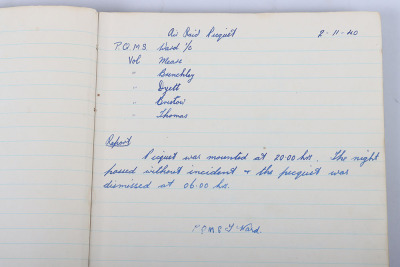 Air Raid Picquet 2-11-40
P.Q.M.S. Ward i/c
Vol Meare
" Brinchley
" Dyett
" Onstow
" Thomas
Report
Picquet was mounted at 20.00 hrs. The night
passed without incident & the picquet was
dismissed at 06.00 hr.
P.Q.M.S. F. Ward.